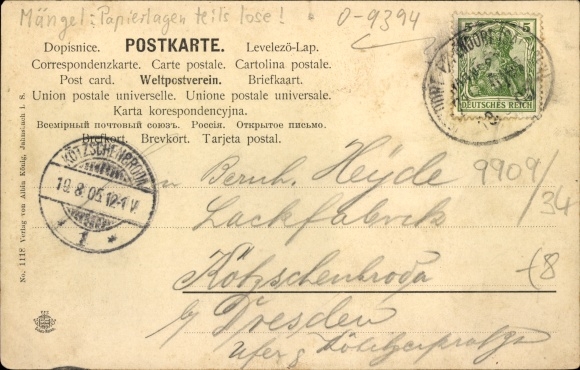 Mängel: Papierlagen teils lose!
0-9394
Dopisnice. POSTKARTE. Levelező-Lap.
Correspondenzkarte. Carte postale. Cartolina postale.
Post card. Weltpostverein. Briefkaart.
Union postale universelle. Unione postale universale.
Karta korespondencyjna.
Всемірный почтовый союзъ. Россія. Открытое письмо.
Brefkort. Brevkort. Tarjeta postal.
5 5
DEUTSCHES REICH
KÖTZSCHENBRODA
19.8.05.12-1 V.
1
Bernh. Heyde
Lackfabrik
Kötzschenbroda
b/ Dresden
9909/34
No. 1118 Verlag von Alida König, Johnsbach i. S.